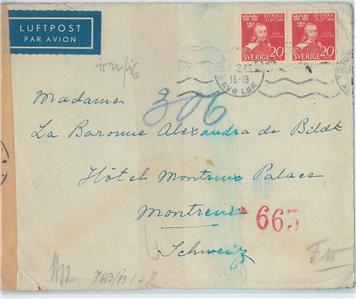 LUFTPOST
PAR AVION
SVENSKA FLOTTAN
SVENSKA FLOTTAN
SVERIGE 20
SVERIGE 20
18-19
306
Madame
La Baronne Alexandra de Bildt
Hôtel Montreux Palace
Montreux
665
Schweiz